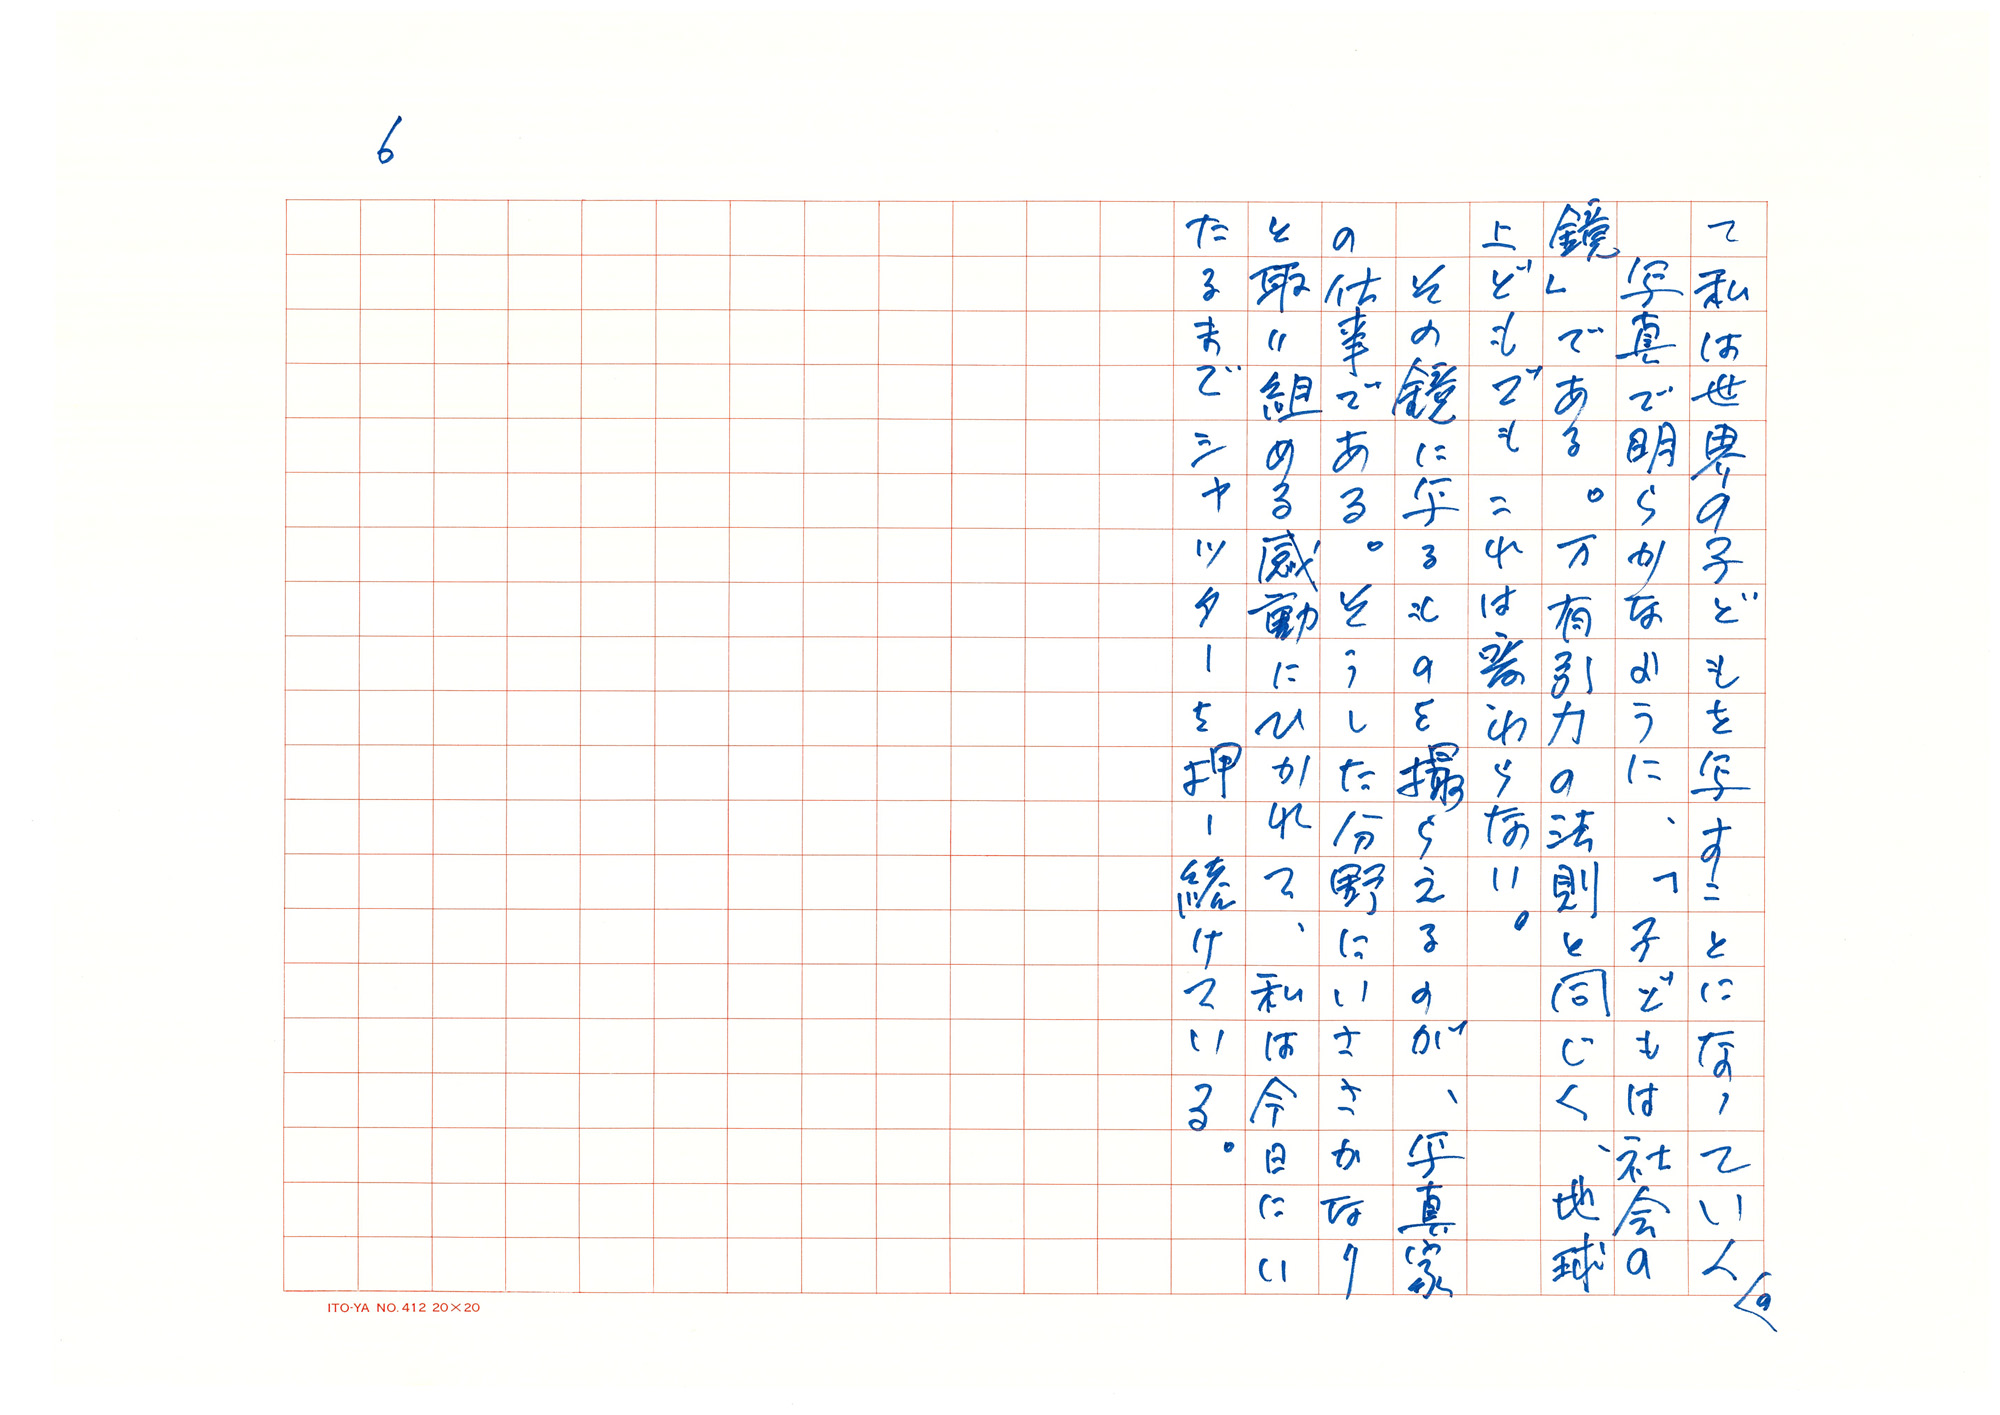 6
て私は世界の子どもを写すことになっていく。
写真で明らかなように、「子どもは社会の
鏡」である。万有引力の法則と同じく、地球
上どもでもこれは変わらない。
その鏡に写るものを撮らえるのが、写真家
の仕事である。そうした分野にいささかなり
と取り組める感動にひかれて、私は今日にい
たるまでシャッターを押し続けている。
ITO-YA NO.412 20×20